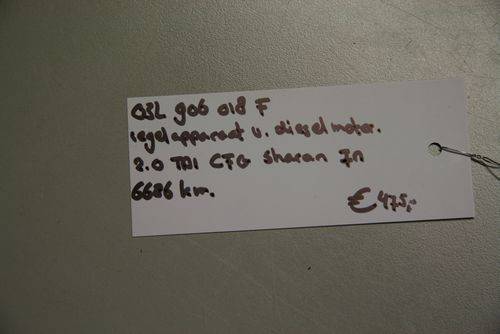 03L 906 018 F
regelapparaat v. dieselmotor.
2.0 TDI CFG Sharan 7n
6686 km.
€ 475,-